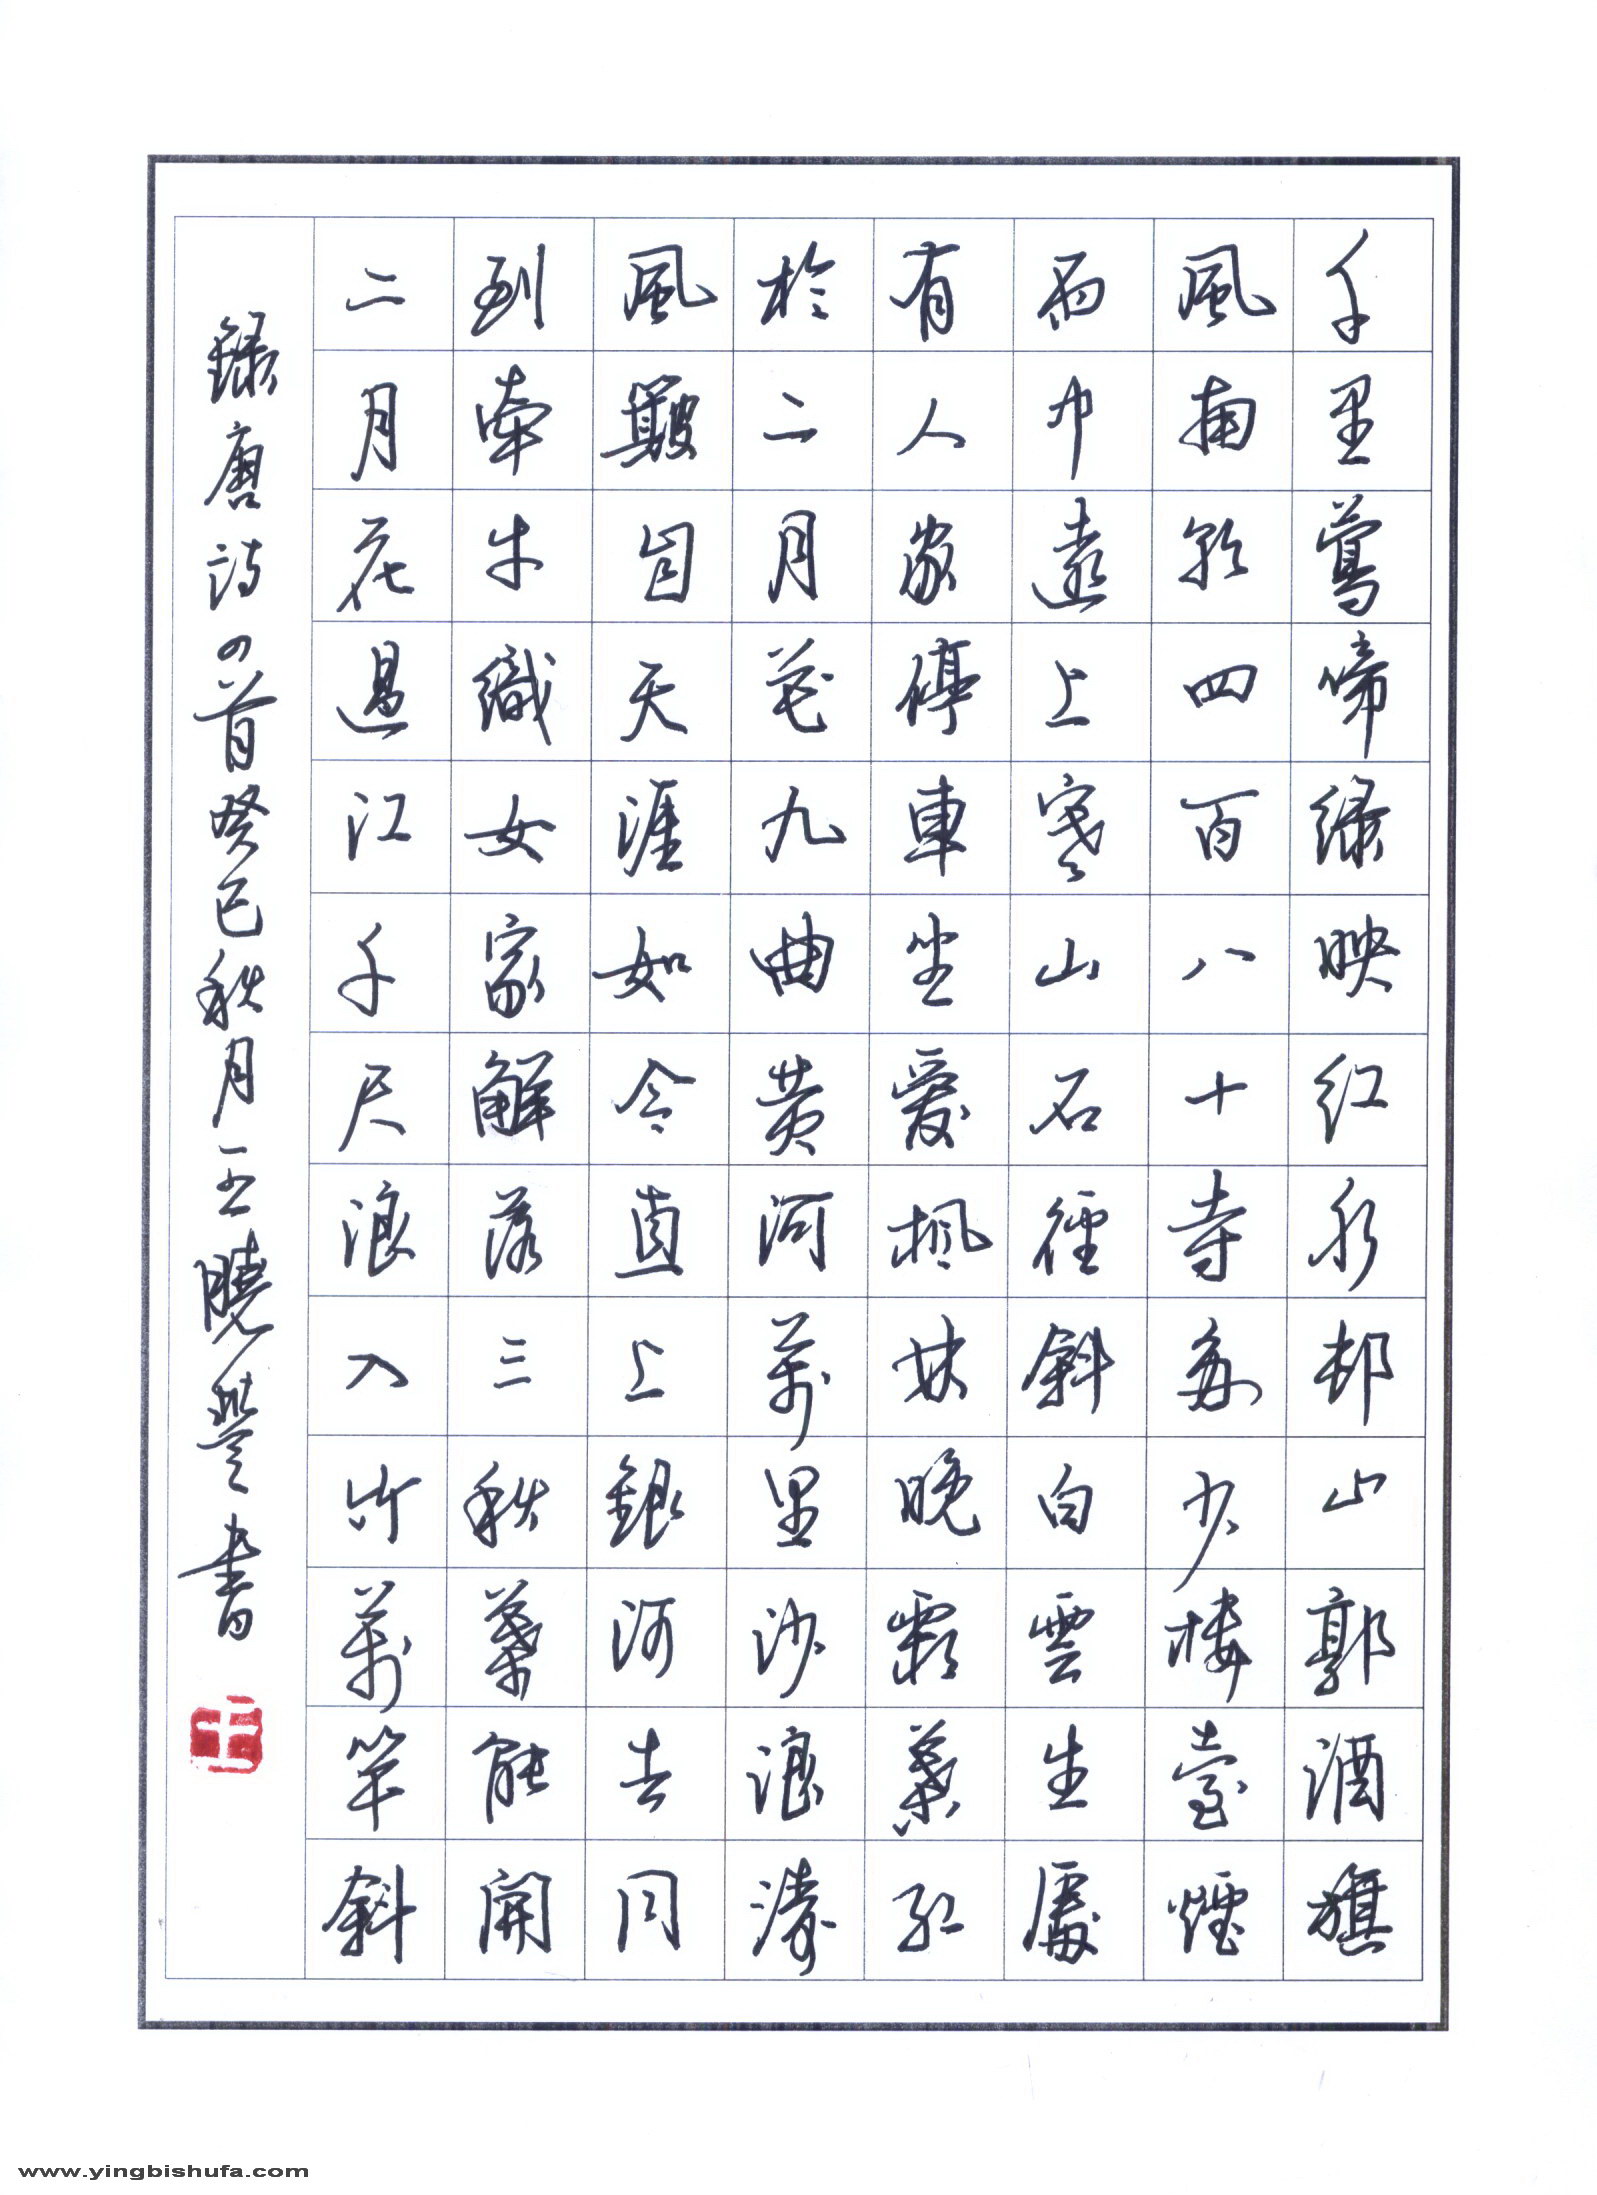 千里鶯啼綠映紅水邨山郭酒旗
風南朝四百八十寺多少樓臺煙
雨中遠上寒山石徑斜白雲生處
有人家停車坐愛楓林晚霜葉紅
於二月花九曲黃河萬里沙浪濤
風簸自天涯如今直上銀河去同
到牽牛織女家解落三秋葉能開
二月花過江千尺浪入竹萬竿斜
錄唐詩四首癸巳秋月王曉書
王
www.yingbishufa.com